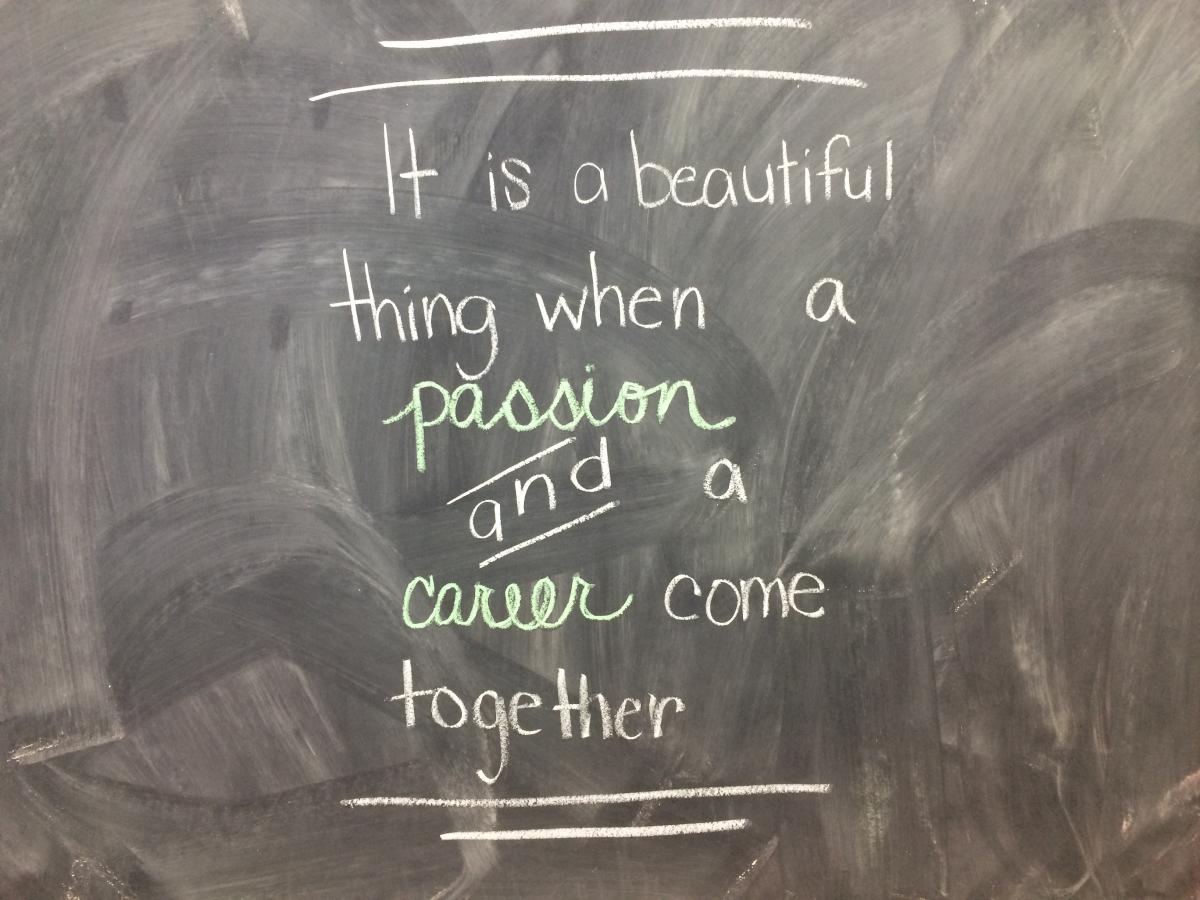 It is a beautiful
thing when a
passion
and a
career come
together